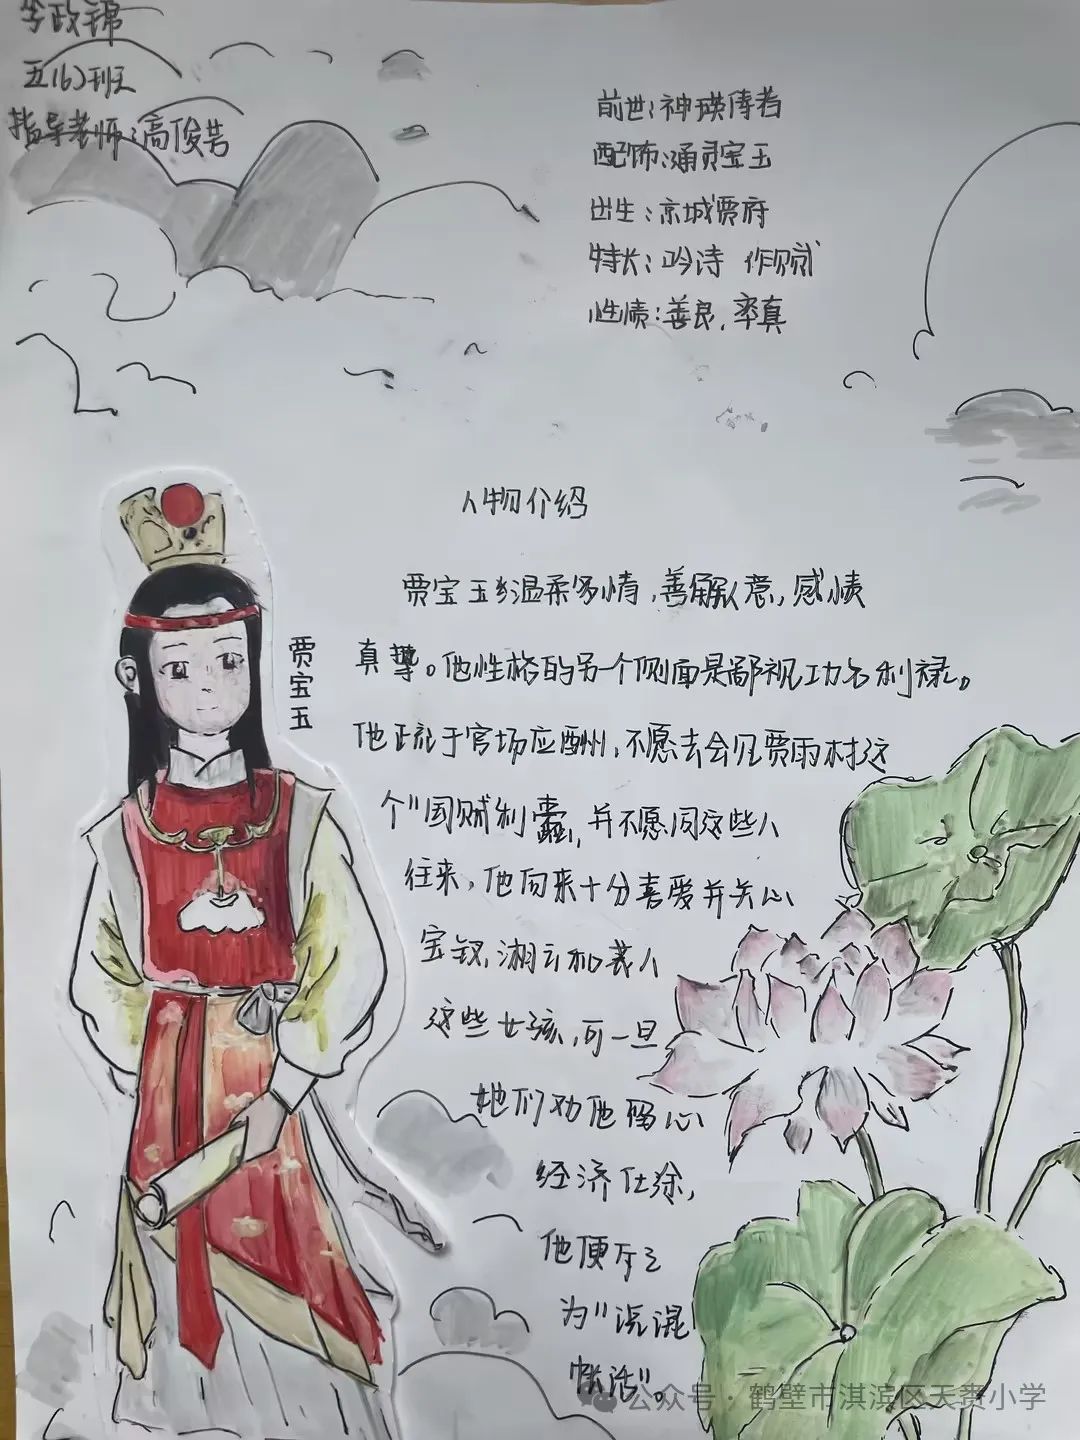 李政锦
五(6)班
指导老师:高俊芳
前世:神瑛侍者
配饰:通灵宝玉
出生:京城贾府
特长:吟诗 作赋
性情:善良,率真
人物介绍
贾宝玉
贾宝玉温柔多情,善解人意,感情
真挚。他性格的另一个侧面是鄙视功名利禄。
他疏于官场应酬,不愿去会见贾雨村这
个"国贼利蠹,并不愿同这些人
往来,他向来十分喜爱并关心
宝钗,湘云和袭人
这些女孩,可一旦
她们劝他留心
经济仕途,
他便斥之
为"混混
帐话"。
公众号·鹤壁市淇滨区天赉小学